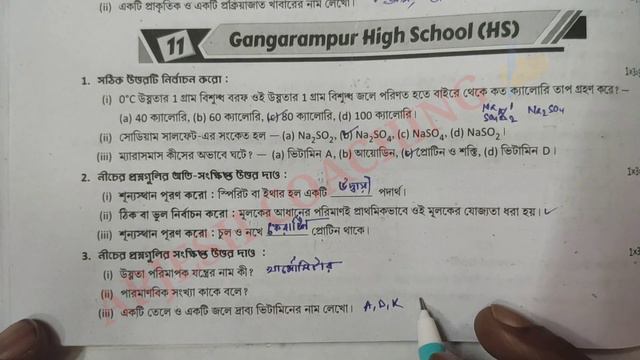 (ii) একটি প্রাকৃতিক ও একটি প্রক্রিয়াজাত খাবারের নাম লেখো।
11 Gangarampur High School (HS)
1. সঠিক উত্তরটি নির্বাচন করো : 1x3
(i) 0°C উষ্ণতার 1 গ্রাম বিশুদ্ধ বরফ ওই উষ্ণতার 1 গ্রাম বিশুদ্ধ জলে পরিণত হতে বাইরে থেকে কত ক্যালোরি তাপ গ্রহণ করে? —
(a) 40 ক্যালোরি, (b) 60 ক্যালোরি, (c) 80 ক্যালোরি, (d) 100 ক্যালোরি। Na 1 Na₂SO₄
SO₄ 2
(ii) সোডিয়াম সালফেট-এর সংকেত হল — (a) Na₂SO₂, (b) Na₂SO₄, (c) NaSO₄, (d) NaSO₂।
(iii) ম্যারাসমাস কীসের অভাবে ঘটে? — (a) ভিটামিন A, (b) আয়োডিন, (c) প্রোটিন ও শক্তি, (d) ভিটামিন D।
2. নীচের প্রশ্নগুলির অতি-সংক্ষিপ্ত উত্তর দাও : 1x3
(i) শূন্যস্থান পূরণ করো : স্পিরিট বা ইথার হল একটি উদ্বায়ী পদার্থ।
(ii) ঠিক বা ভুল নির্বাচন করো : মূলকের আধানের পরিমাণই প্রাথমিকভাবে ওই মূলকের যোজ্যতা ধরা হয়। ✓
(iii) শূন্যস্থান পূরণ করো : চুল ও নখে কেরাটিন প্রোটিন থাকে।
3. নীচের প্রশ্নগুলির সংক্ষিপ্ত উত্তর দাও : 1x3
(i) উষ্ণতা পরিমাপক যন্ত্রের নাম কী? থার্মোমিটার
(ii) পারমাণবিক সংখ্যা কাকে বলে?
(iii) একটি তেলে ও একটি জলে দ্রাব্য ভিটামিনের নাম লেখো। A, D, K